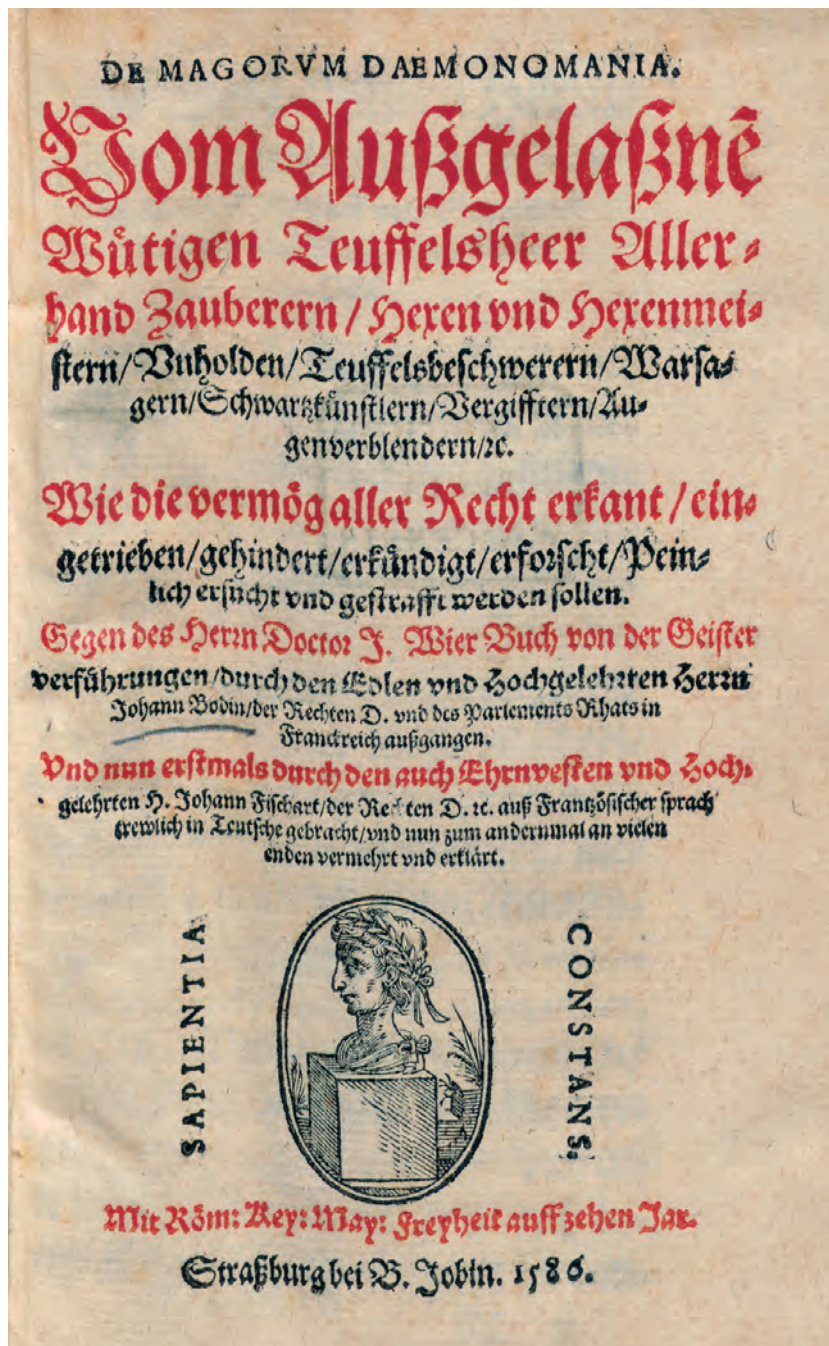 DE MAGORVM DAEMONOMANIA.
Vom Außgelaßnē
Wuͤtigen Teuffelsheer Aller⸗
hand Zauberern / Hexen vnd Hexenmei⸗
stern/Vnholden/Teuffelsbeschwerern/Warsa⸗
gern/Schwartzkuͤnstlern/Vergifftern/Au⸗
genverblendern/ꝛc.
Wie die vermoͤg aller Recht erkant / ein⸗
getrieben/gehindert/erkuͤndigt/erforscht/Pein⸗
lich ersucht vnd gestrafft werden sollen.
Gegen des Herrn Doctor J. Wier Buch von der Geister
verfuͤhrungen/durch den Edlen vnd Hochgelehrten Herrn
Johann Bodin/der Rechten D. vnd des Parlements Rhats in
Franckreich außgangen.
Vnd nun erstmals durch den auch Ehrnvesten vnd Hoch⸗
gelehrten H. Johann Fischart/der Rechten D. ꝛc. auß Frantzoͤsischer sprach
trewlich in Teutsche gebracht/vnd nun zum andernmal an vielen
enden vermehrt vnd erklaͤrt.
SAPIENTIA
CONSTANS.
Mit Roͤm: Key: May: Freyheit auff zehen Jar.
Straßburg bei B. Jobin. 1586.